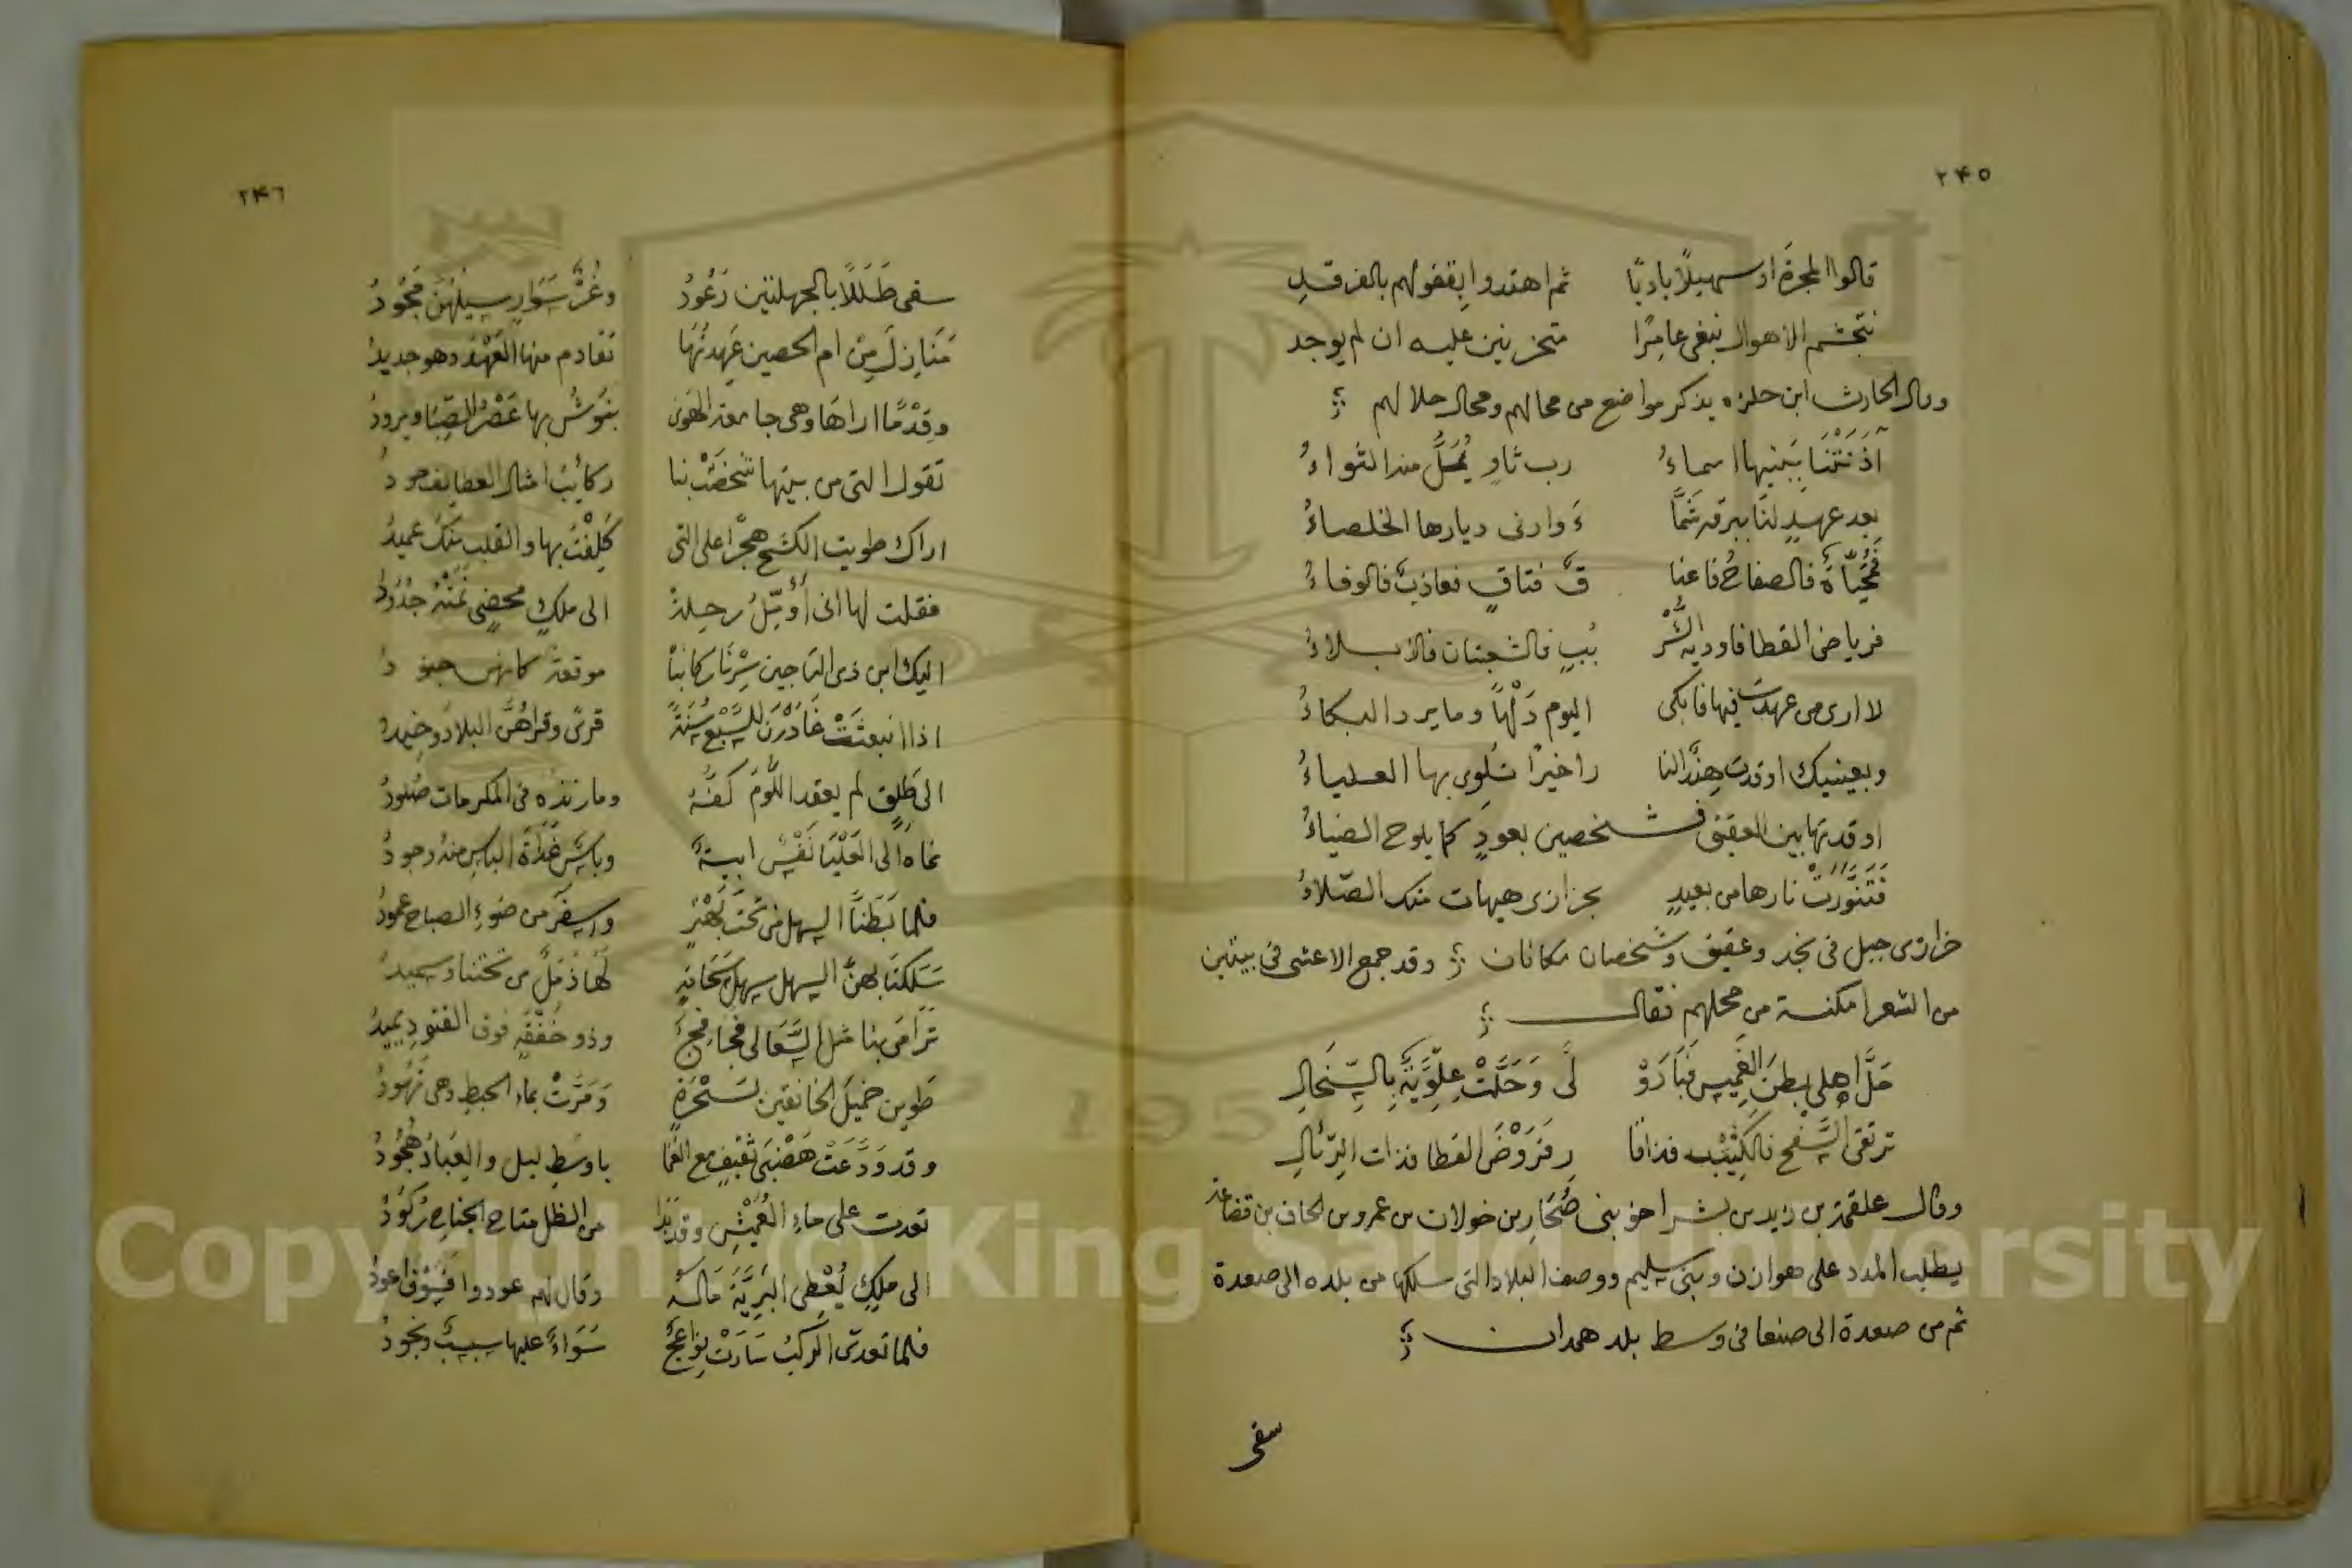 ٢٤٥
قالوا المجرة او سهيلا باديا ثم اهتدوا بقفولهم بالفرقد
نتجشم الاهوال نبغى عامرا متحزنين عليه ان لم يوجد
وقال الحارث ابن حلزه يذكر مواضع من محالهم ومحال حلالهم
آذَنَتْنَا بِبَينِها اسماءُ رب ثاوٍ يُمَلُّ منه الثواءُ
بعد عهدٍ لنا ببرقه شمَّا ءَ وادنى ديارها الخلصاءُ
فمُحَيّاةُ فالصفاحُ فاعنا قُ فتاقٍ فعاذبٌ فالوفاءُ
فرياض القطا فاوديه الشُّر بُبِ فالشعبتان فالابلاءُ
لا ارى من عهدت فيها فابكى اليوم دَلْهاً وما يرد البكاءُ
وبعينيك اوقدت هندٌ النا را خيرًا تلوى بها العلياءُ
اوقدتها بين العقيق فشخصين بعودٍ كما يلوح الضياءُ
فَتَنَوَّرَتْ نارها من بعيدٍ بخزازى هيهات منك الصّلاءُ
خزازى جبل فى نجد وعقيق وشخصان مكانان وقد جمع الاعشى فى بيتين
من الشعر امكنة من محلهم فقال
حَلَّ اهلى بطنَ الغَمِيسِ فَبَادَوْ لَى وَحَلَّتْ عِلْوِيَّةً بِالسِّخَالِ
ترتقى السَّفْحَ فالكثيب فذاقا رٍ فَرَوْضَ القطا فذات الرّئالِ
وقال علقمة بن زيد بن بشر اخو بنى صُحَار بن خولان بن عمرو بن الحاف بن قضاعه
يطلب المدد على هوازن وبنى سليم ووصف البلاد التى سلكها من بلده الى صعدة
ثم من صعدة الى صنعا فى وسط بلد همدان
سقى
٢٤٦
سقى طَلَلًا بالجهلتين رَعُودُ وغُرٌّ سَوَارٍ سيلهُنَ نَجُودُ
مَنَازِلَ مِنْ ام الحصين عَهِدتُهَا تقادم منها العَهْدُ وهو جديدُ
وقِدْمًا اراها وهى جامعه الهَوى بها عَصْرُ الصِّبَا ويرودُ
تقول التى من بيتها شَخَصَتْ بنا ركائبُ امثال
اراك طويت الكشح هجرًا على التى كَلِفْتَ بها والقلب منك عميدُ
فقلت لها انى أُؤَمِّلُ رحلةً الى ملكٍ محضٍ نَمَتْهُ جُدُودُ
اليك ابن ذى التاجين سِرْنَا ركائباً موقعة كانهن
اذا انبعثَتْ غَادَرْنَ للسَّبْعِ سُنَّةً قرىً وقراهُنَّ البلاد
الى طَلِقٍ لم يعقد اللّوْمُ كفَّهُ وما زنده فى المكرمات صَلُودُ
نماه الى العَلْيَا نَفْسٌ ابيةٌ وباسٌ غَدَاةَ الباس منه وجودُ
فلما تَبَطَّنَّا السهل من تحت واسفر من ضوءِ الصباح عمودُ
سَلَكنَا بهنَّ السهل سهل لها ذُمَّلٌ من تحتنا
تَرَامَى بنا مثل السَّعَالى فجًا ففجَّ وذو خَفْقَةٍ فوق القتود يميدُ
طوين خميلَ الخانقين بسُحْرةٍ وَمَرَّتْ بماء الحبط وهى
وقد وَدَّعَتْ هَضْبَى ثقيف مع باوسَطِ ليل والعِبَادُ هُجُودُ
تعدت على ماءِ وقد بدا من الظل متاح الجناح رُكُودُ
الى ملكٍ يُعْطِى البَرِيَّةَ مَالَهُ وقال لهم عودوا فسَوْفَ اعودُ
فلما تعدّى الركبُ سَارَتْ سَوَاءً عليها سبسبٌ ونجودُ